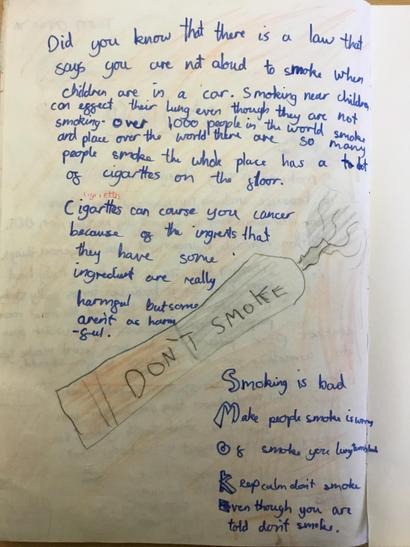 Did you know that there is a law that
says you are not aloud to smoke when
children are in a car. Smoking near children
can effect their lung even though they are not
smoking. over 1000 people in the world smoke
and place over the world there are so many
people smoke the whole place has a lot
of cigarttes on the floor.
Cigarttes can course you cancer
because of the ingreits that
they have some
ingreduct are really
harmgul but some
aren't as harm
-gul.
DON'T SMOKE
Smoking is bad
Make people smoke is wrong
Of smoke you lung
Keep calm don't smoke
Even though you are
told don't smoke.